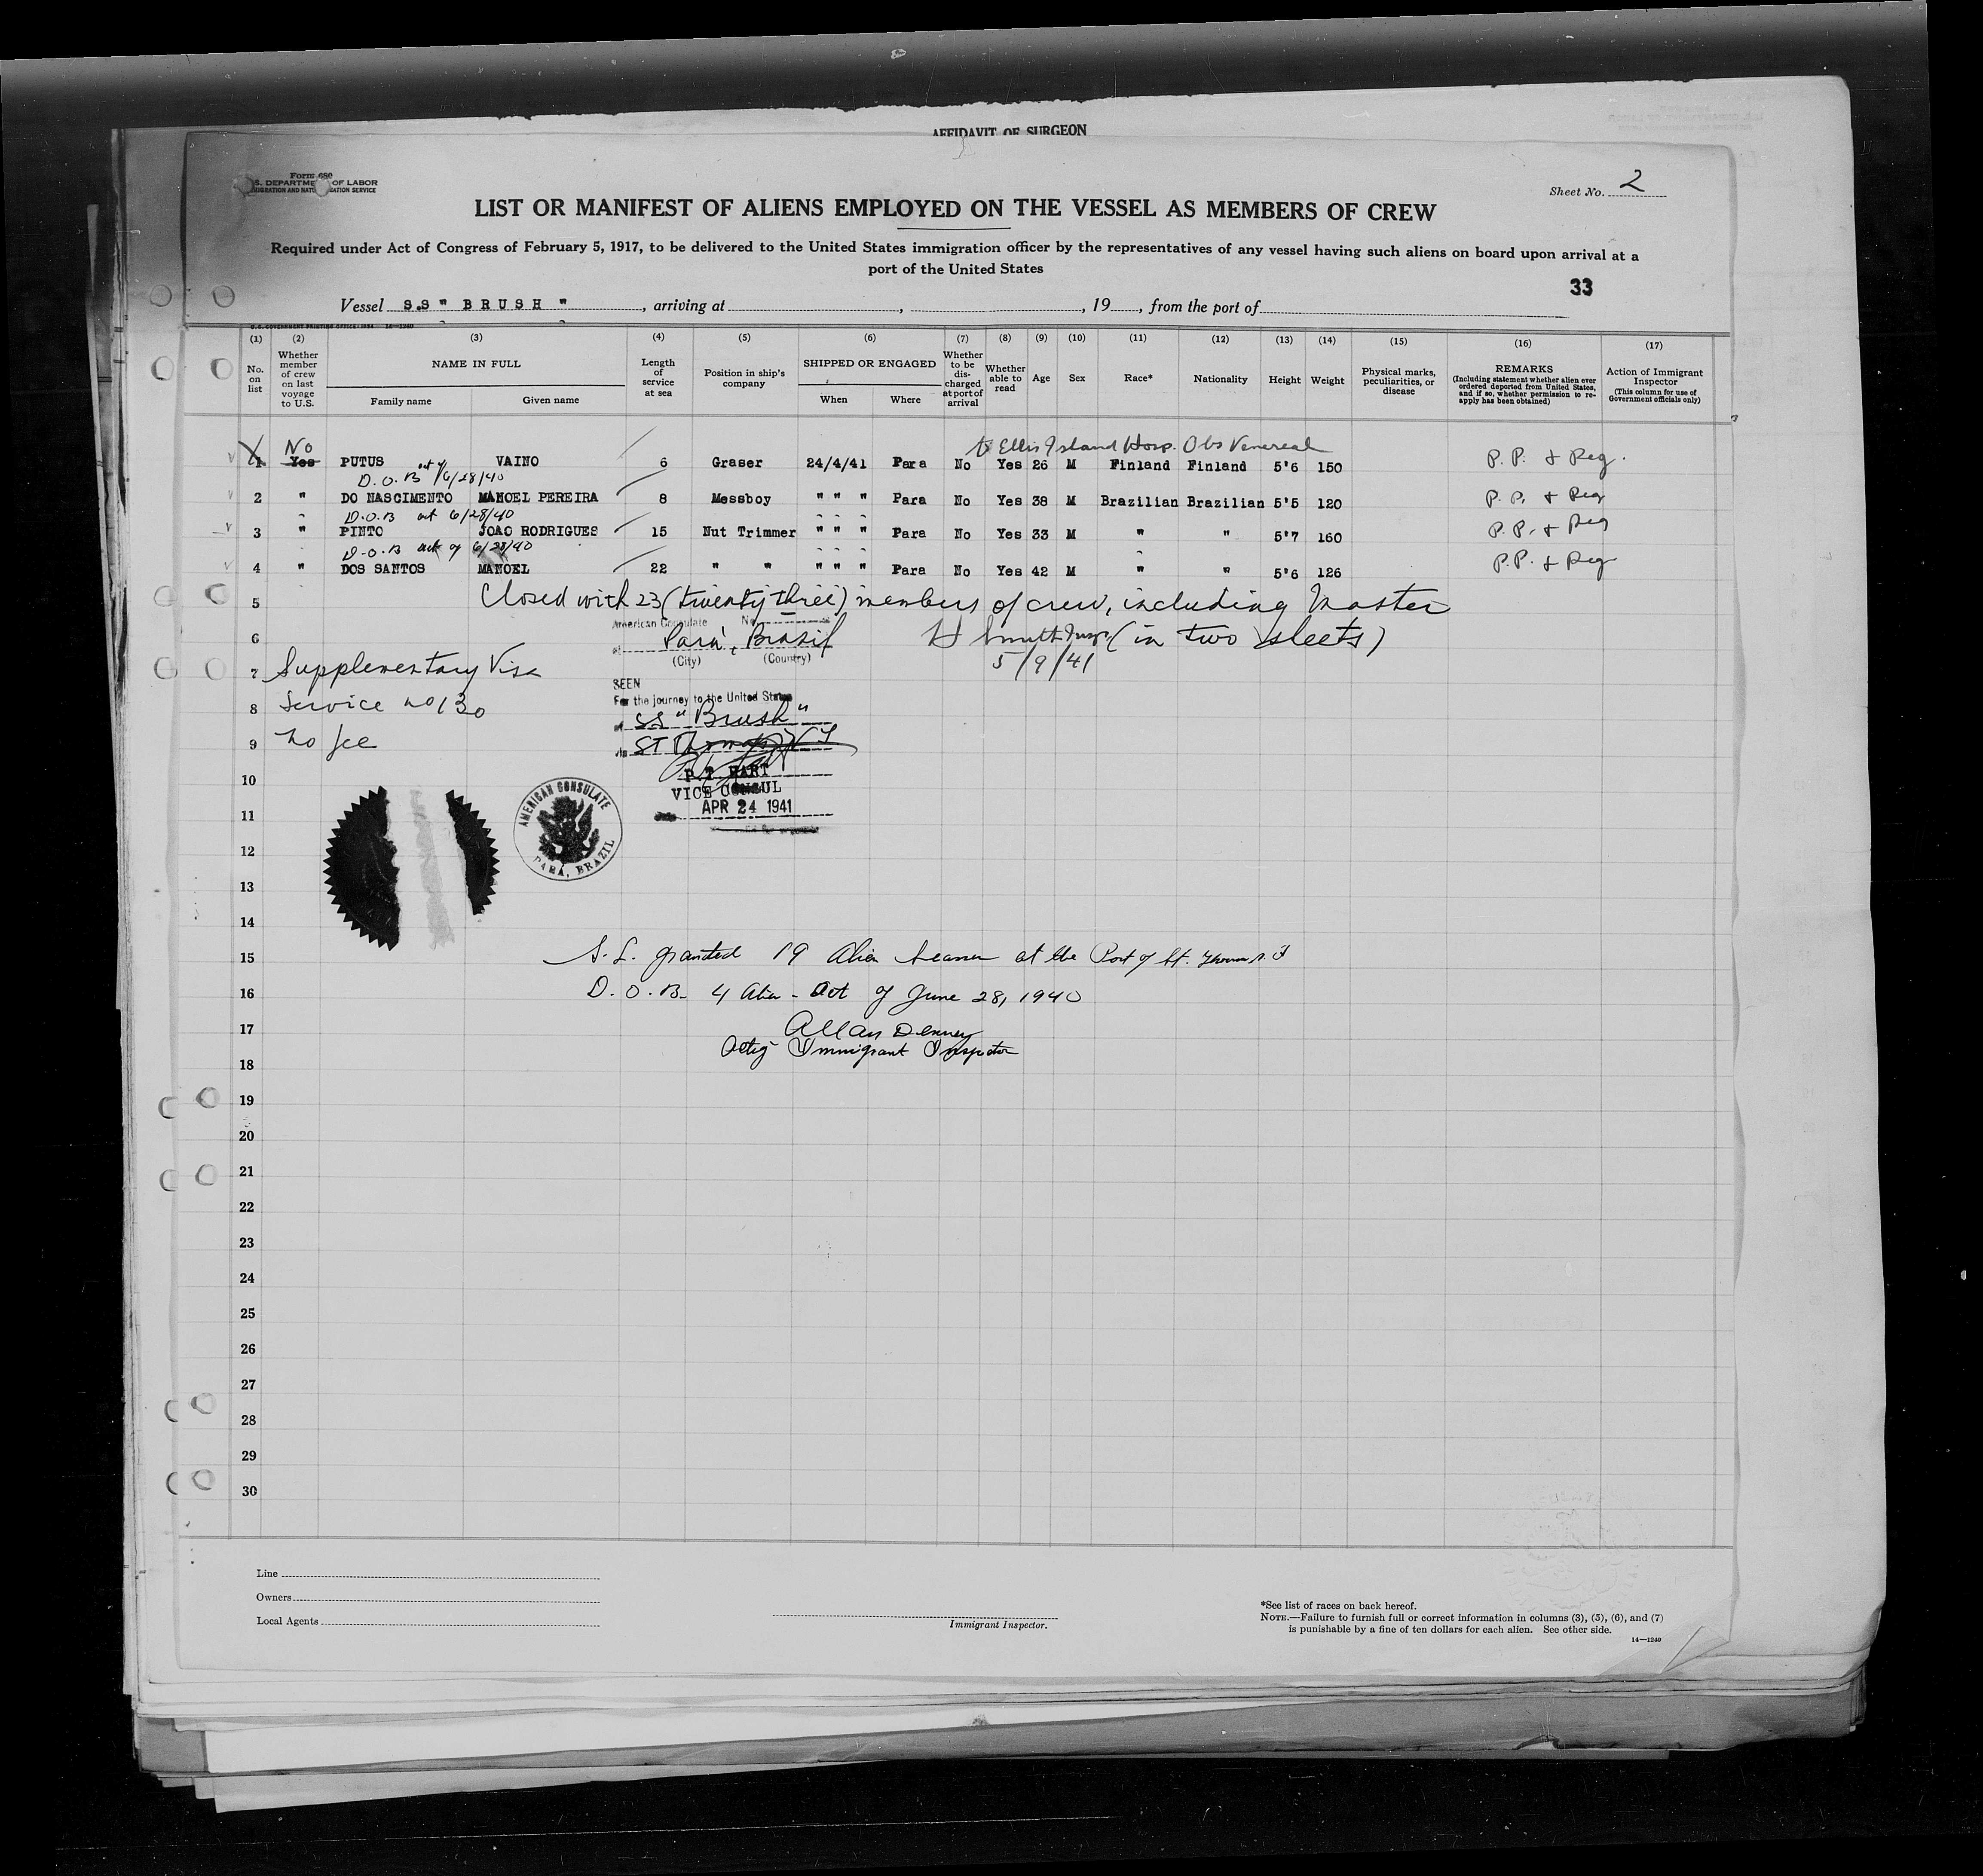 AFFIDAVIT OF SURGEON
Form 680
U.S. DEPARTMENT OF LABOR
IMMIGRATION AND NATURALIZATION SERVICE
Sheet No. 2
LIST OR MANIFEST OF ALIENS EMPLOYED ON THE VESSEL AS MEMBERS OF CREW
Required under Act of Congress of February 5, 1917, to be delivered to the United States immigration officer by the representatives of any vessel having such aliens on board upon arrival at a
port of the United States
33
Vessel S.S " BRUSH ", arriving at , , 19 , from the port of
U.S. GOVERNMENT PRINTING OFFICE 14—1240
(1) (2) (3) (4) (5) (6) (7) (8) (9) (10) (11) (12) (13) (14) (15) (16) (17)
No. on list
Whether member of crew on last voyage to U.S.
NAME IN FULL
Family name Given name
Length of service at sea
Position in ship's company
SHIPPED OR ENGAGED
When Where
Whether to be discharged at port of arrival
Whether able to read
Age
Sex
Race*
Nationality
Height
Weight
Physical marks, peculiarities, or disease
REMARKS
(Including statement whether alien ever ordered deported from United States, and if so, whether permission to re-apply has been obtained)
Action of Immigrant Inspector
(This column for use of Government officials only)
No to Ellis Island Hosp. Obs Venereal
1 Yes PUTUS VAINO 6 Graser 24/4/41 Para No Yes 26 M Finland Finland 5'6 150 P.P. & Reg.
D.O.B act of 6/28/40
2 " DO NASCIMENTO MANOEL PEREIRA 8 Messboy " " " Para No Yes 38 M Brazilian Brazilian 5'5 120 P.P. & Reg
D.O.B act 6/28/40
3 " PINTO JOAO RODRIGUES 15 Nut Trimmer " " " Para No Yes 33 M " " 5'7 160 P.P. & Reg
D.O.B act of 6/28/40
4 " DOS SANTOS MANOEL 22 " " " " " Para No Yes 42 M " " 5'6 126 P.P. & Reg
5 Closed with 23 (twenty three) members of crew, including Master
American Consulate No.
6 at Pará, Brasil (in two sheets)
(City) (Country) 5/9/41
7 Supplementary Visa
SEEN
For the journey to the United States
8 Service no 130
SS "Brush"
9 no fee
10 P.T. HART
VICE CONSUL
11 APR 24 1941
AMERICAN CONSULATE
PARA, BRAZIL
12
13
14
15 S.L. granted 19 Alien Seamen at the Port of St. Thomas V.I
16 D.O.B. 4 Alien - Act of June 28, 1940
17 Allan Denney
Actg Immigrant Inspector
18
19
20
21
22
23
24
25
26
27
28
29
30
Line
Owners
Local Agents
Immigrant Inspector.
*See list of races on back hereof.
NOTE.—Failure to furnish full or correct information in columns (3), (5), (6), and (7)
is punishable by a fine of ten dollars for each alien. See other side.
14—1240